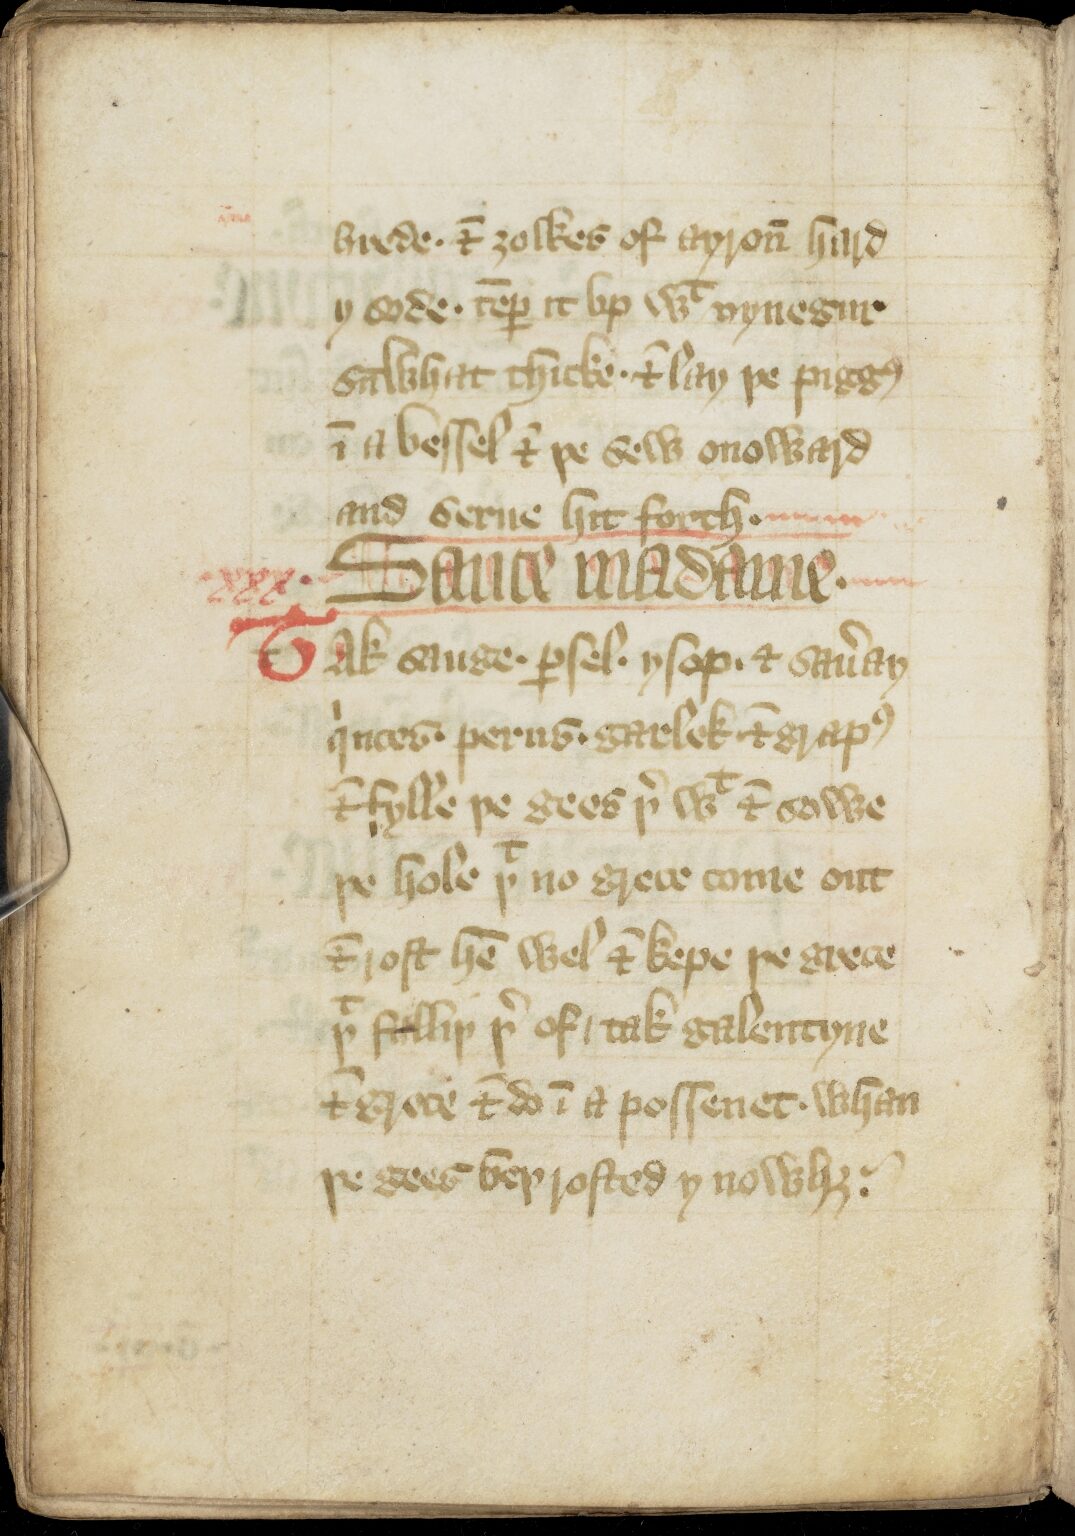 brede. ⁊ ȝolkes of ayroñ hard
y sode. tēp̲ it vp wͭ vynegur
sūwhat thicke. ⁊ lay þe piggꝰ
ī a vessel ⁊ þe sew onoward
and serue hit forth.
xxx. Sauce madame.
Tak sauge. ꝑsel. ysop. ⁊ sau̾ay
qⁱnces. perus. garlek. ⁊ grapꝰ
⁊ fylle þe gees þ̾ wͭ ⁊ sowe
þe hole þͭ no grece come out
⁊ rost hē wel ⁊ kepe þe grece
þͭ falliþ þ̾ of / tak galentyne
⁊ grece ⁊ do ī a possenet. whan
þe gees beþ rosted y nowhȝ.